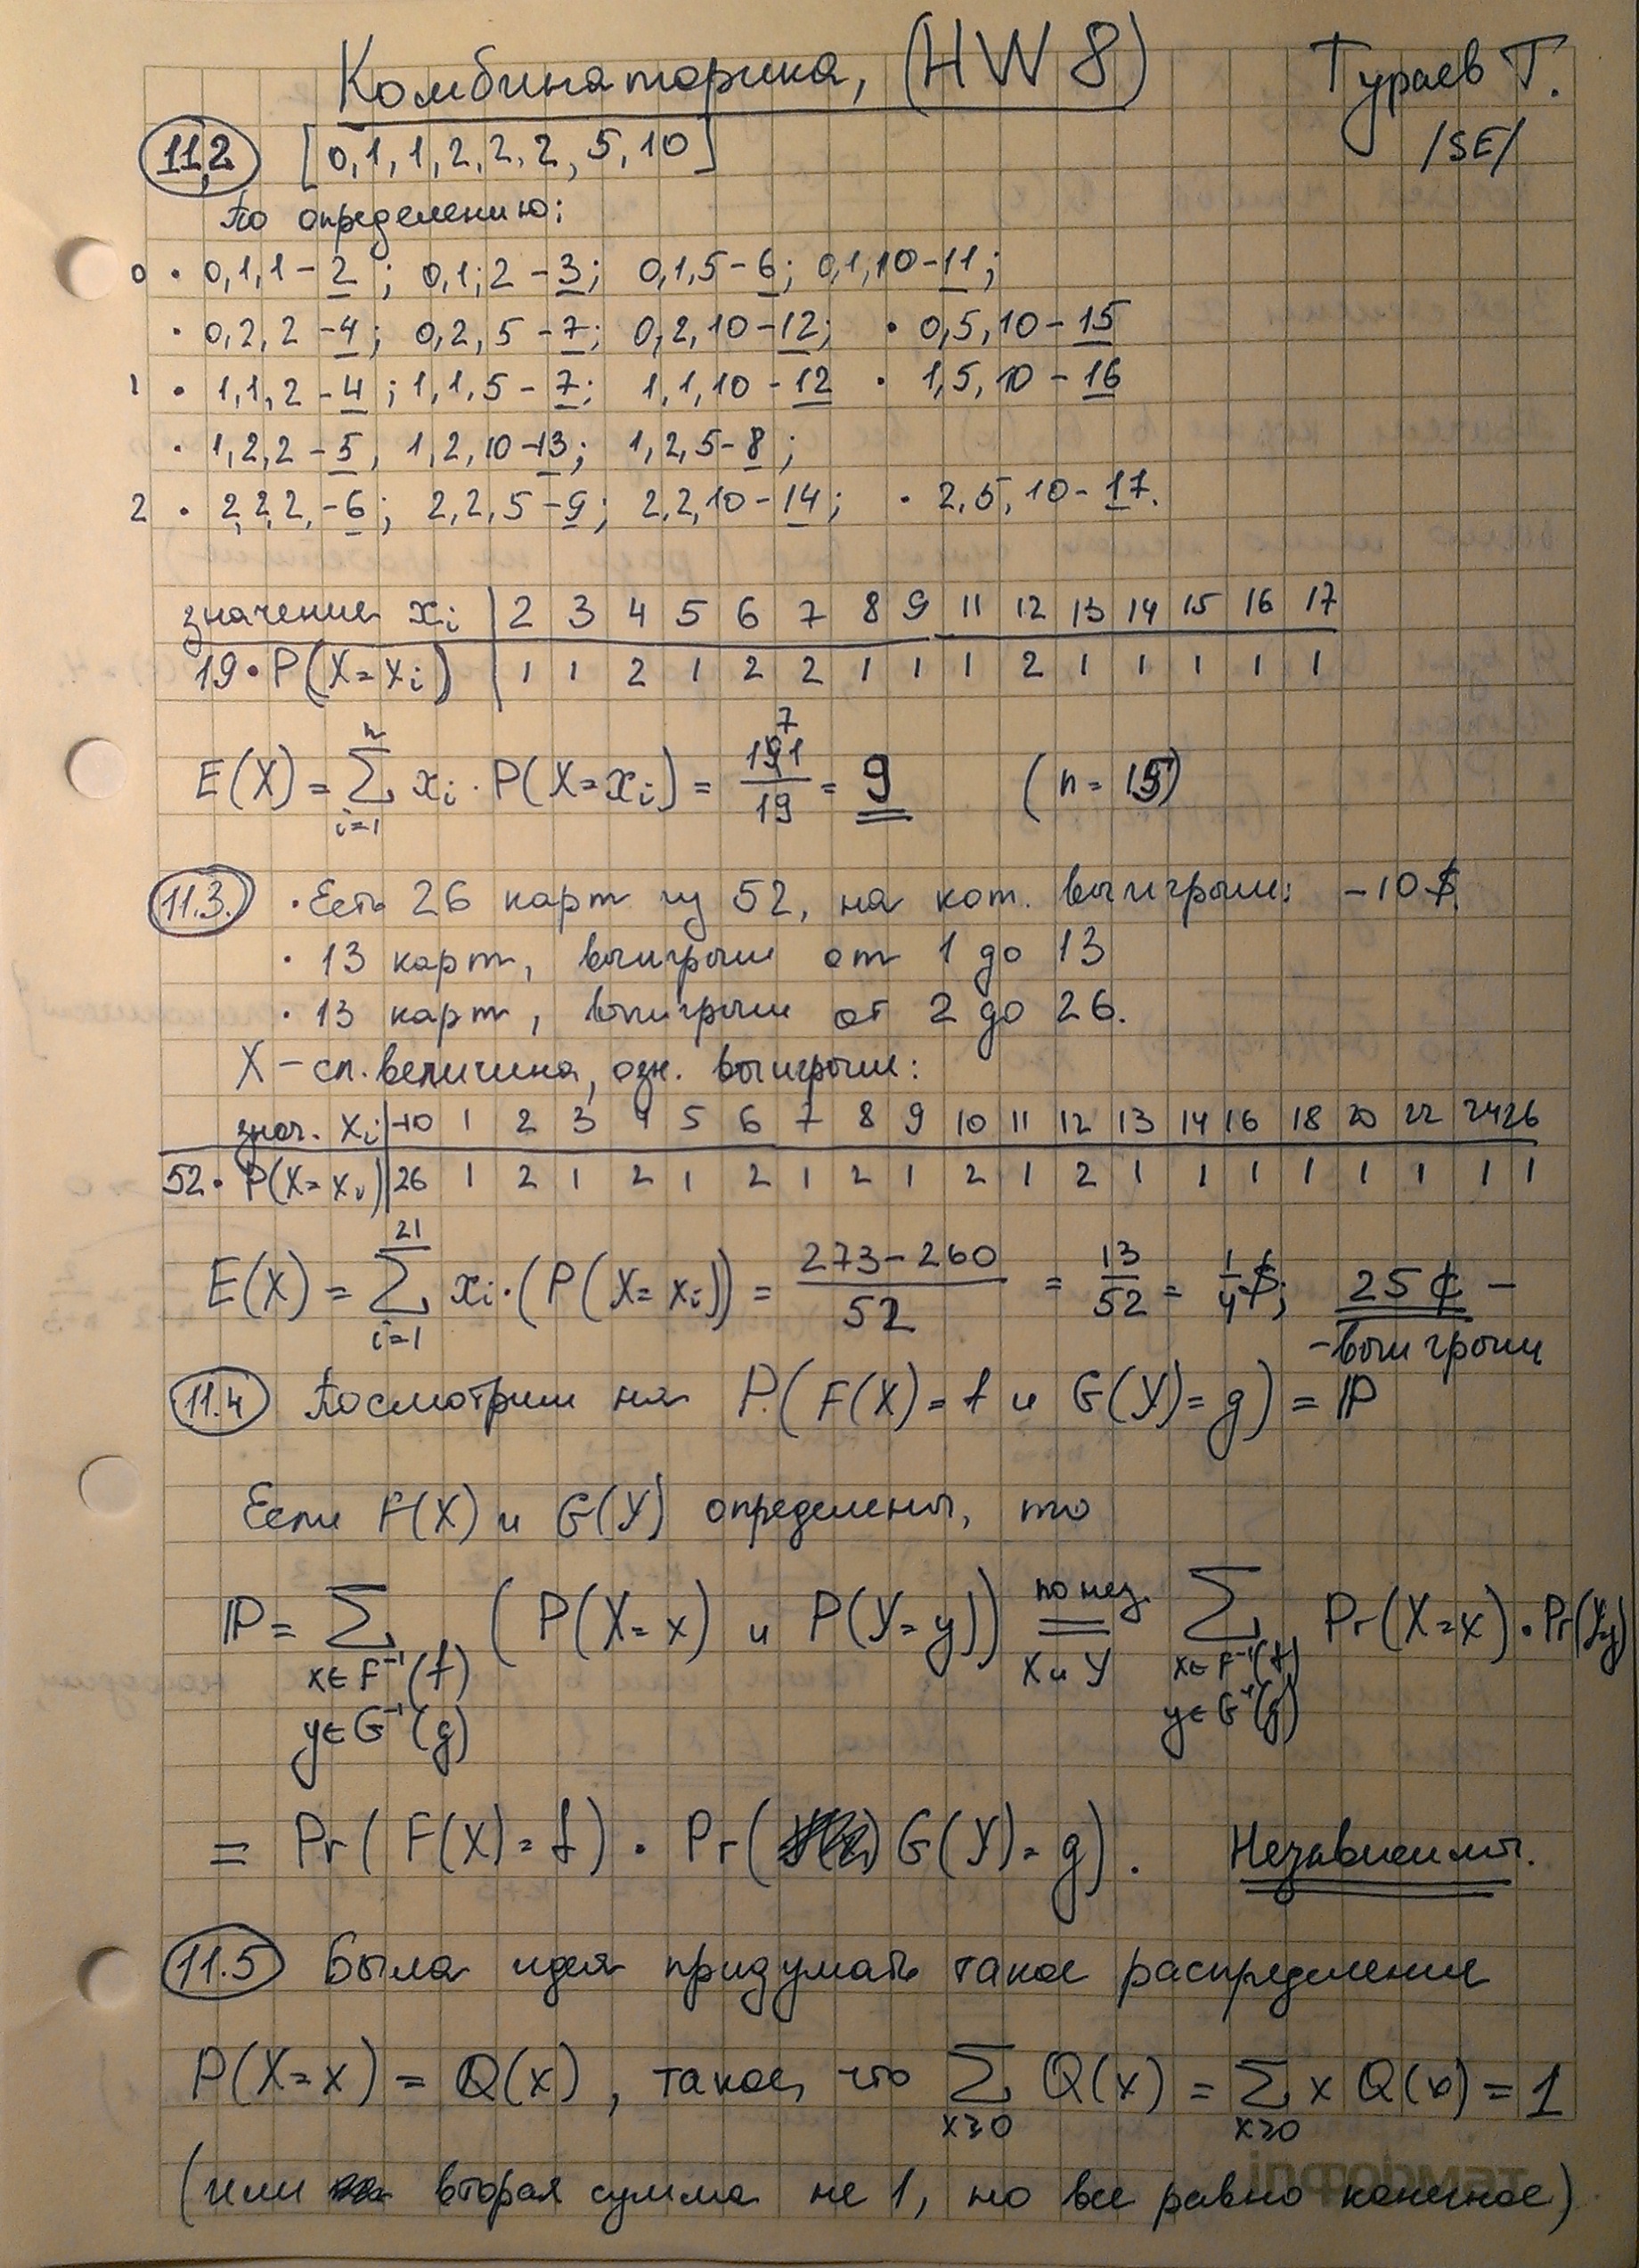 Комбинаторика, (HW 8)
Тураев Т.
/SE/
11.2 [0,1,1,2,2,2,5,10]
По определению:
0 • 0,1,1 – 2; 0,1,2 – 3; 0,1,5 – 6; 0,1,10 – 11;
• 0,2,2 – 4; 0,2,5 – 7; 0,2,10 – 12; • 0,5,10 – 15
1 • 1,1,2 – 4; 1,1,5 – 7; 1,1,10 – 12 • 1,5,10 – 16
• 1,2,2 – 5, 1,2,10 – 13; 1,2,5 – 8;
2 • 2,2,2, – 6; 2,2,5 – 9; 2,2,10 – 14; • 2,5,10 – 17.
значение xi | 2 3 4 5 6 7 8 9 11 12 13 14 15 16 17
19 • P(X=xi) | 1 1 2 1 2 2 1 1 1 2 1 1 1 1 1
E(X) = Σ_{i=1}^{n} xi · P(X=xi) = 171/19 = 9 (n = 15)
11.3. • Есть 26 карт из 52, на кот. выигрыш: –10 $.
• 13 карт, выигрыш от 1 до 13
• 13 карт, выигрыш от 2 до 26.
X – сл. величина, озн. выигрыш:
знач. xi | -10 1 2 3 4 5 6 7 8 9 10 11 12 13 14 16 18 20 22 24 26
52 • P(X=xi) | 26 1 2 1 2 1 2 1 2 1 2 1 2 1 1 1 1 1 1 1 1
E(X) = Σ_{i=1}^{21} xi · (P(X=xi)) = (273 – 260)/52 = 13/52 = 1/4 $; 25 ¢ –
– выигрыш
11.4 Посмотрим на P(F(X) = f и G(Y) = g) = ℙ
Если F(X) и G(Y) определены, то
ℙ = Σ_{x∈F⁻¹(f) y∈G⁻¹(g)} (P(X=x) и P(Y=y)) = по нез. X и Y Σ_{x∈F⁻¹(f) y∈G⁻¹(g)} Pr(X=x) • Pr(Y=y)
= Pr(F(X) = f) • Pr(G(Y) = g). Независимы.
11.5 Была идея придумать такое распределение
P(X=x) = Q(x), такое, что Σ_{x≥0} Q(x) = Σ_{x≥0} x Q(x) = 1
(или вторая сумма не 1, но все равно конечное)
інформат